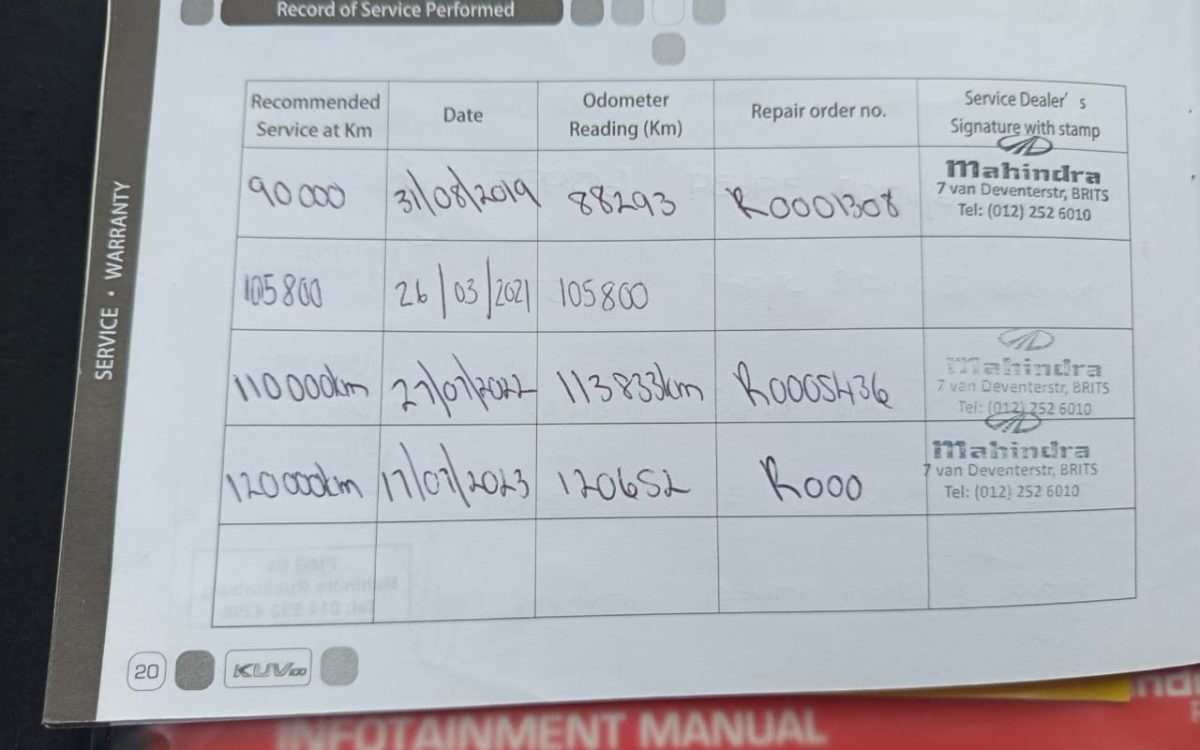 Record of Service Performed
Recommended Service at Km
Date
Odometer Reading (Km)
Repair order no.
Service Dealer's Signature with stamp
90 000
31/08/2019
88293
R0001308
Mahindra
7 van Deventerstr, BRITS
Tel: (012) 252 6010
105 800
26/03/2021
105800
110 000km
27/07/2022
113833km
R0005436
Mahindra
7 van Deventerstr, BRITS
Tel: (012) 252 6010
120 000km
17/07/2023
120652
R000
Mahindra
7 van Deventerstr, BRITS
Tel: (012) 252 6010
SERVICE • WARRANTY
20
KUV100
INFOTAINMENT MANUAL